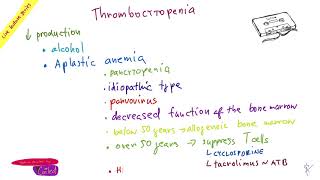 Live lecture series
Thrombocytopenia
↓ production
• alcohol
• Aplastic anemia
• pancytopenia
• idiopathic type
• parvovirus
• decreased function of the bone marrow
• below 50 years → allogeneic bone marrow
• over 50 years → suppress T cells
↳ CYCLOSPORINE
↳ tacrolimus ~ ATB
• H